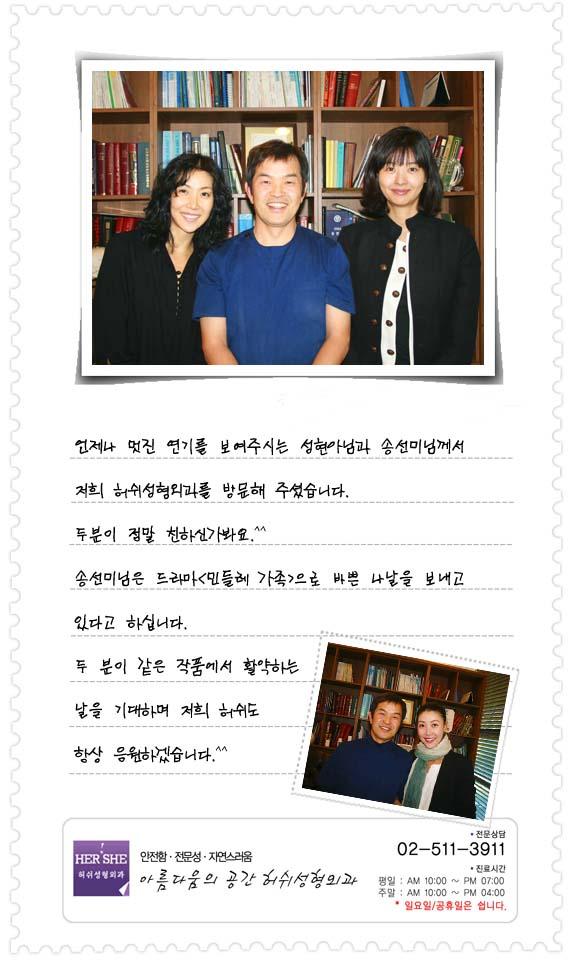 언제나 멋진 연기를 보여주시는 성현아님과 송선미님께서
저희 허쉬성형외과를 방문해 주셨습니다.
두분이 정말 친하신가봐요.^^
송선미님은 드라마<민들레 가족>으로 바쁜 나날을 보내고
있다고 하십니다.
두 분이 같은 작품에서 활약하는
날을 기대하며 저희 허쉬도
항상 응원하겠습니다.^^
HER SHE
허쉬성형외과
안전함 · 전문성 · 자연스러움
아름다움의 공간 허쉬성형외과
• 전문상담
02-511-3911
• 진료시간
평일 : AM 10:00 ~ PM 07:00
주말 : AM 10:00 ~ PM 04:00
* 일요일/공휴일은 쉽니다.